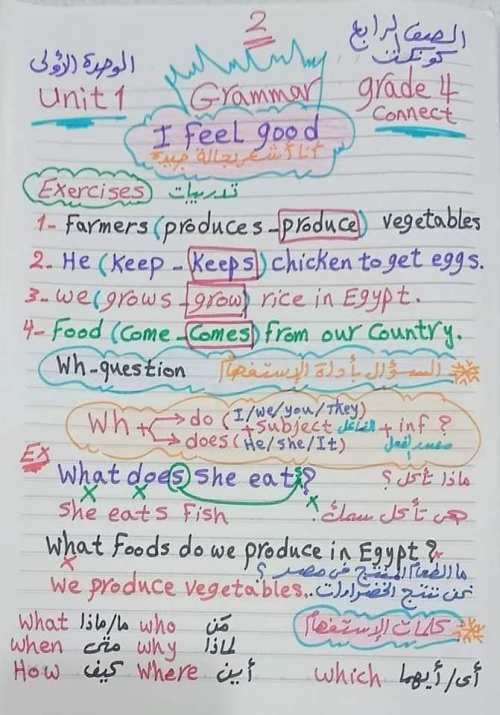 2
الصف الرابع
كونكت
الوحدة الأولى
Unit 1
Grammar
grade 4
Connect
I feel good
أنا أشعر بحالة جيدة
Exercises تدريبات
1- Farmers (produces - produce) vegetables
2- He (Keep - Keeps) chicken to get eggs.
3- we (grows - grow) rice in Egypt.
4- Food (Come - Comes) from our Country.
Wh-question السؤال بأداة الإستفهام
Wh + do (I/we/you/They)
+ subject الفاعل + inf ?
does (He/she/It) مصدر الفعل
EX
What does she eats? ماذا تأكل ؟
x x x
She eats fish هى تأكل سمك.
What Foods do we produce in Egypt ?
x ما الطعام المنتج فى مصر ؟
We produce vegetables.. نحن ننتج الخضراوات
What ما/ماذا who مَن كلمات الإستفهام
when متى why لماذا
How كيف Where أين which أى/أيهما